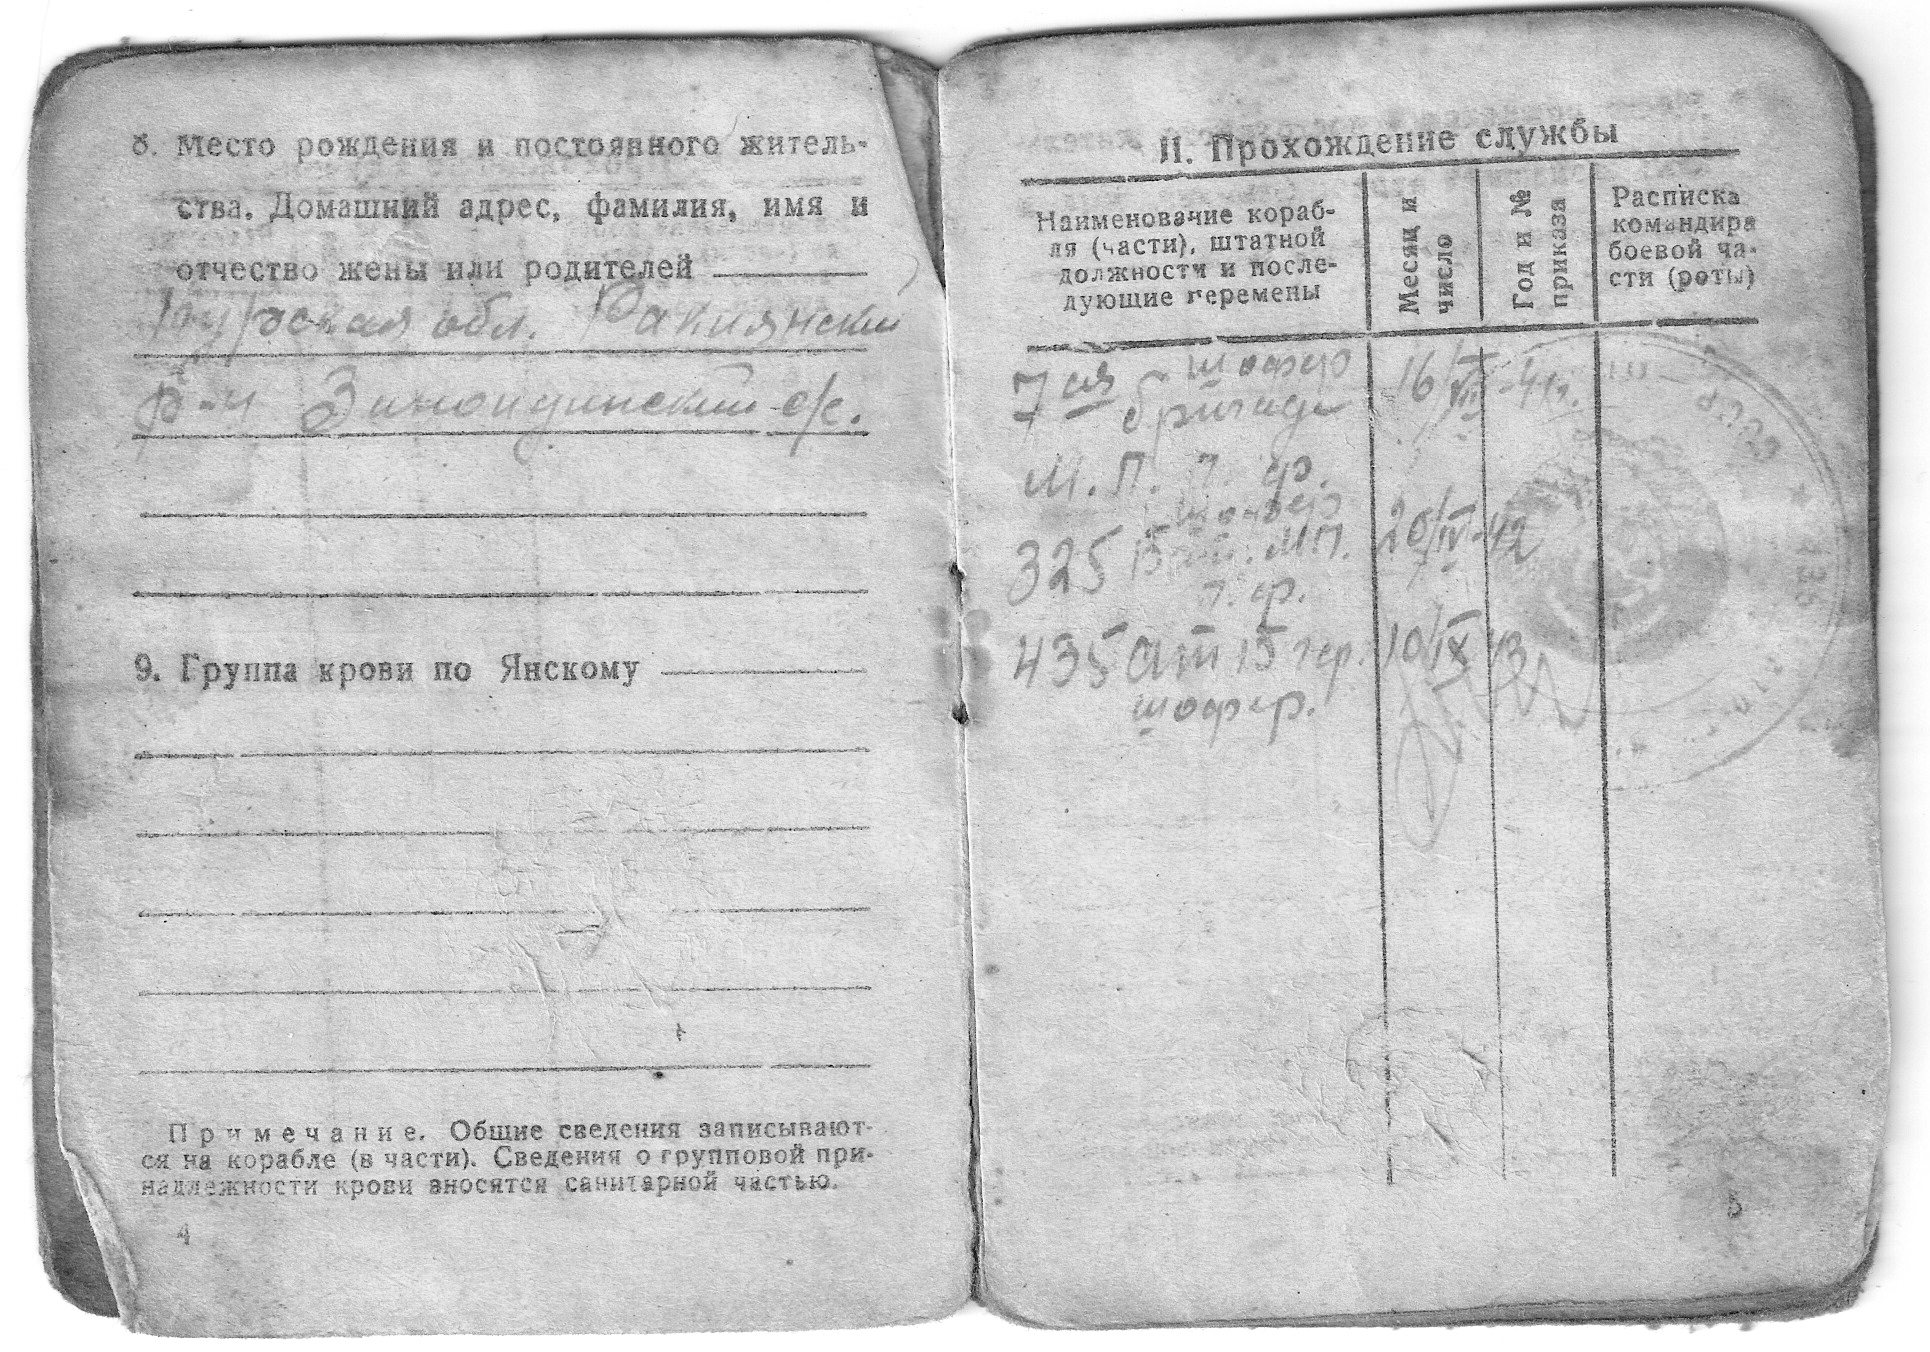 8. Место рождения и постоянного житель-
ства. Домашний адрес, фамилия, имя и
отчество жены или родителей
Курская обл. Ракиянский
р-н Зиноидинский с/с.
9. Группа крови по Янскому
Примечание. Общие сведения записывают-
ся на корабле (в части). Сведения о групповой при-
надлежности крови вносятся санитарной частью.
4
II. Прохождение службы
Наименование кораб-
ля (части), штатной
должности и после-
дующие перемены
Месяц и
число
Год и №
приказа
Расписка
командира
боевой ча-
сти (роты)
шофер
7ая бригада 16/VII-41г.
М. П. Л. ф.
шофер
325 МП. 20/IV-42
Л. ф.
435 10/IX 43
шофер.
СССР
435
5